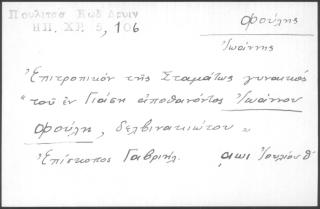 Πουλίτσα Κωδ Δρυιν
ΗΠ. ΧΡ. 5, 106
Φούλης
Ἰωάννης
Ἐπιτροπικόν τῆς Σταμάτως γυναικός
"τοῦ ἐν Γιάσῃ ἀποθανόντος Ἰωάννου
Φούλη, δελβινακιώτου"
Ἐπίσκοπος Γαβριήλ. αωι Ἰουλίου θ'